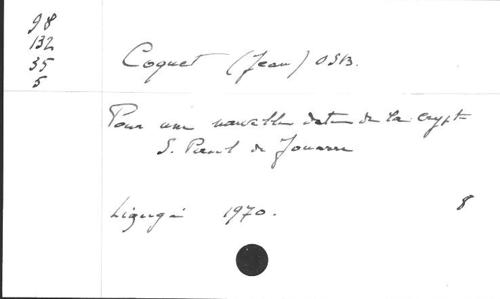 98
132
35
5
Coquet (Jean) OSB.
Pour une nouvelle date de la crypte
S. Paul de Jouarre
Ligugé 1970.
8